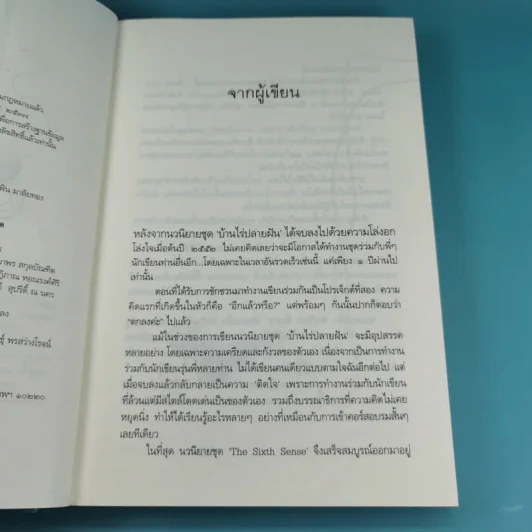 นกฎหมายแล้ว
๒๕๓๗
เพื่อการสร้างฐานข้อมูล
ลิขสิทธิ์แล้วเท่านั้น
มาลัยทอง
สกุลบัณฑิต
ทอณรงค์ศิริ
สุปรีดิ์ ณ นคร
ลง
พรสว่างโรจน์
๑๐๒๒๐
จากผู้เขียน
หลังจากนวนิยายชุด ‘บ้านไร่ปลายฝัน’ ได้จบลงไปด้วยความโล่งอก
โล่งใจเมื่อต้นปี ๒๕๕๒ ไม่เคยคิดเลยว่าจะมีโอกาสได้ทำงานชุดร่วมกับพี่ๆ
นักเขียนท่านอื่นอีก...โดยเฉพาะในเวลาอันรวดเร็วเช่นนี้ แค่เพียง ๑ ปีผ่านไป
เท่านั้น
ตอนที่ได้รับการชักชวนมาทำงานเขียนร่วมกันเป็นโปรเจ็กต์ที่สอง ความ
คิดแรกที่เกิดขึ้นในหัวก็คือ “อีกแล้วหรือ?” แต่พร้อมๆ กันนั้นปากก็ตอบว่า
“ตกลงค่ะ” ไปแล้ว
แม้ในช่วงของการเขียนนวนิยายชุด ‘บ้านไร่ปลายฝัน’ จะมีอุปสรรค
หลายอย่าง โดยเฉพาะความเครียดและกังวลของตัวเอง เนื่องจากเป็นการทำงาน
ร่วมกับนักเขียนรุ่นพี่หลายท่าน ไม่ได้เขียนคนเดียวแบบตามใจฉันอีกต่อไป แต่
เมื่อจบลงแล้วกลับกลายเป็นความ ‘ติดใจ’ เพราะการทำงานร่วมกับนักเขียน
ที่ล้วนแต่มีสไตล์โดดเด่นเป็นของตัวเอง รวมถึงบรรณาธิการที่ความคิดไม่เคย
หยุดนิ่ง ทำให้ได้เรียนรู้อะไรหลายๆ อย่างที่เหมือนกับการเข้าคอร์สอบรมสั้นๆ
เลยทีเดียว
ในที่สุด นวนิยายชุด ‘The Sixth Sense’ จึงเสร็จสมบูรณ์ออกมาอยู่